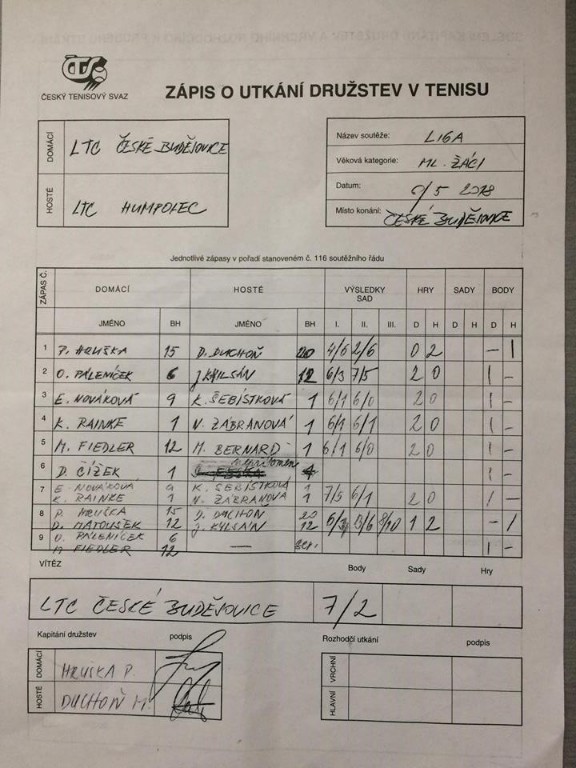 ČESKÝ TENISOVÝ SVAZ
ZÁPIS O UTKÁNÍ DRUŽSTEV V TENISU
DOMÁCÍ LTC ČESKÉ BUDĚJOVICE
HOSTÉ LTC HUMPOLEC
Název soutěže: LIGA
Věková kategorie: ML. ŽÁCI
Datum: /5 2018
Místo konání: ČESKÉ BUDĚJOVICE
Jednotlivé zápasy v pořadí stanoveném č. 116 soutěžního řádu
ZÁPAS Č. DOMÁCÍ HOSTÉ VÝSLEDKY SAD HRY SADY BODY
JMÉNO BH JMÉNO BH I. II. III. D H D H D H
1 P. HRUŠKA 15 D. DUCHOŇ 20 4/6 2/6 0 2 – 1
2 O. PÁLENÍČEK 6 J. 12 6/3 7/5 2 0 1 –
3 E. NOVÁKOVÁ 9 K. ŠEBISTKOVÁ 1 6/1 6/0 2 0 1 –
4 K. RAINKE 1 V. ZÁBRANOVÁ 1 6/1 6/1 2 0 1 –
5 M. FIEDLER 12 M. BERNARD 1 6/1 6/0 2 0 1 –
6 D. ČÍŽEK 1 nepřítomen 1 –
7 E NOVÁKOVÁ 9 K. ŠEBISTKOVÁ 1
K. RAINKE 1 V. ZÁBRANOVA 1 7/5 6/1 2 0 1 –
8 P. HRUŠKA 15 D. DUCHOŇ 20
D. MATOUŠEK 12 J. 12 6/3 8/10 1 2 – 1
9 O. PÁLENÍČEK 6
M FIEDLER 12 — scr. 1 –
VÍTĚZ Body Sady Hry
LTC ČESKÉ BUDĚJOVICE 7/2
Kapitáni družstev podpis Rozhodčí utkání podpis
DOMÁCÍ HRUŠKA P. VRCHNÍ
HOSTÉ DUCHOŇ M. HLAVNÍ